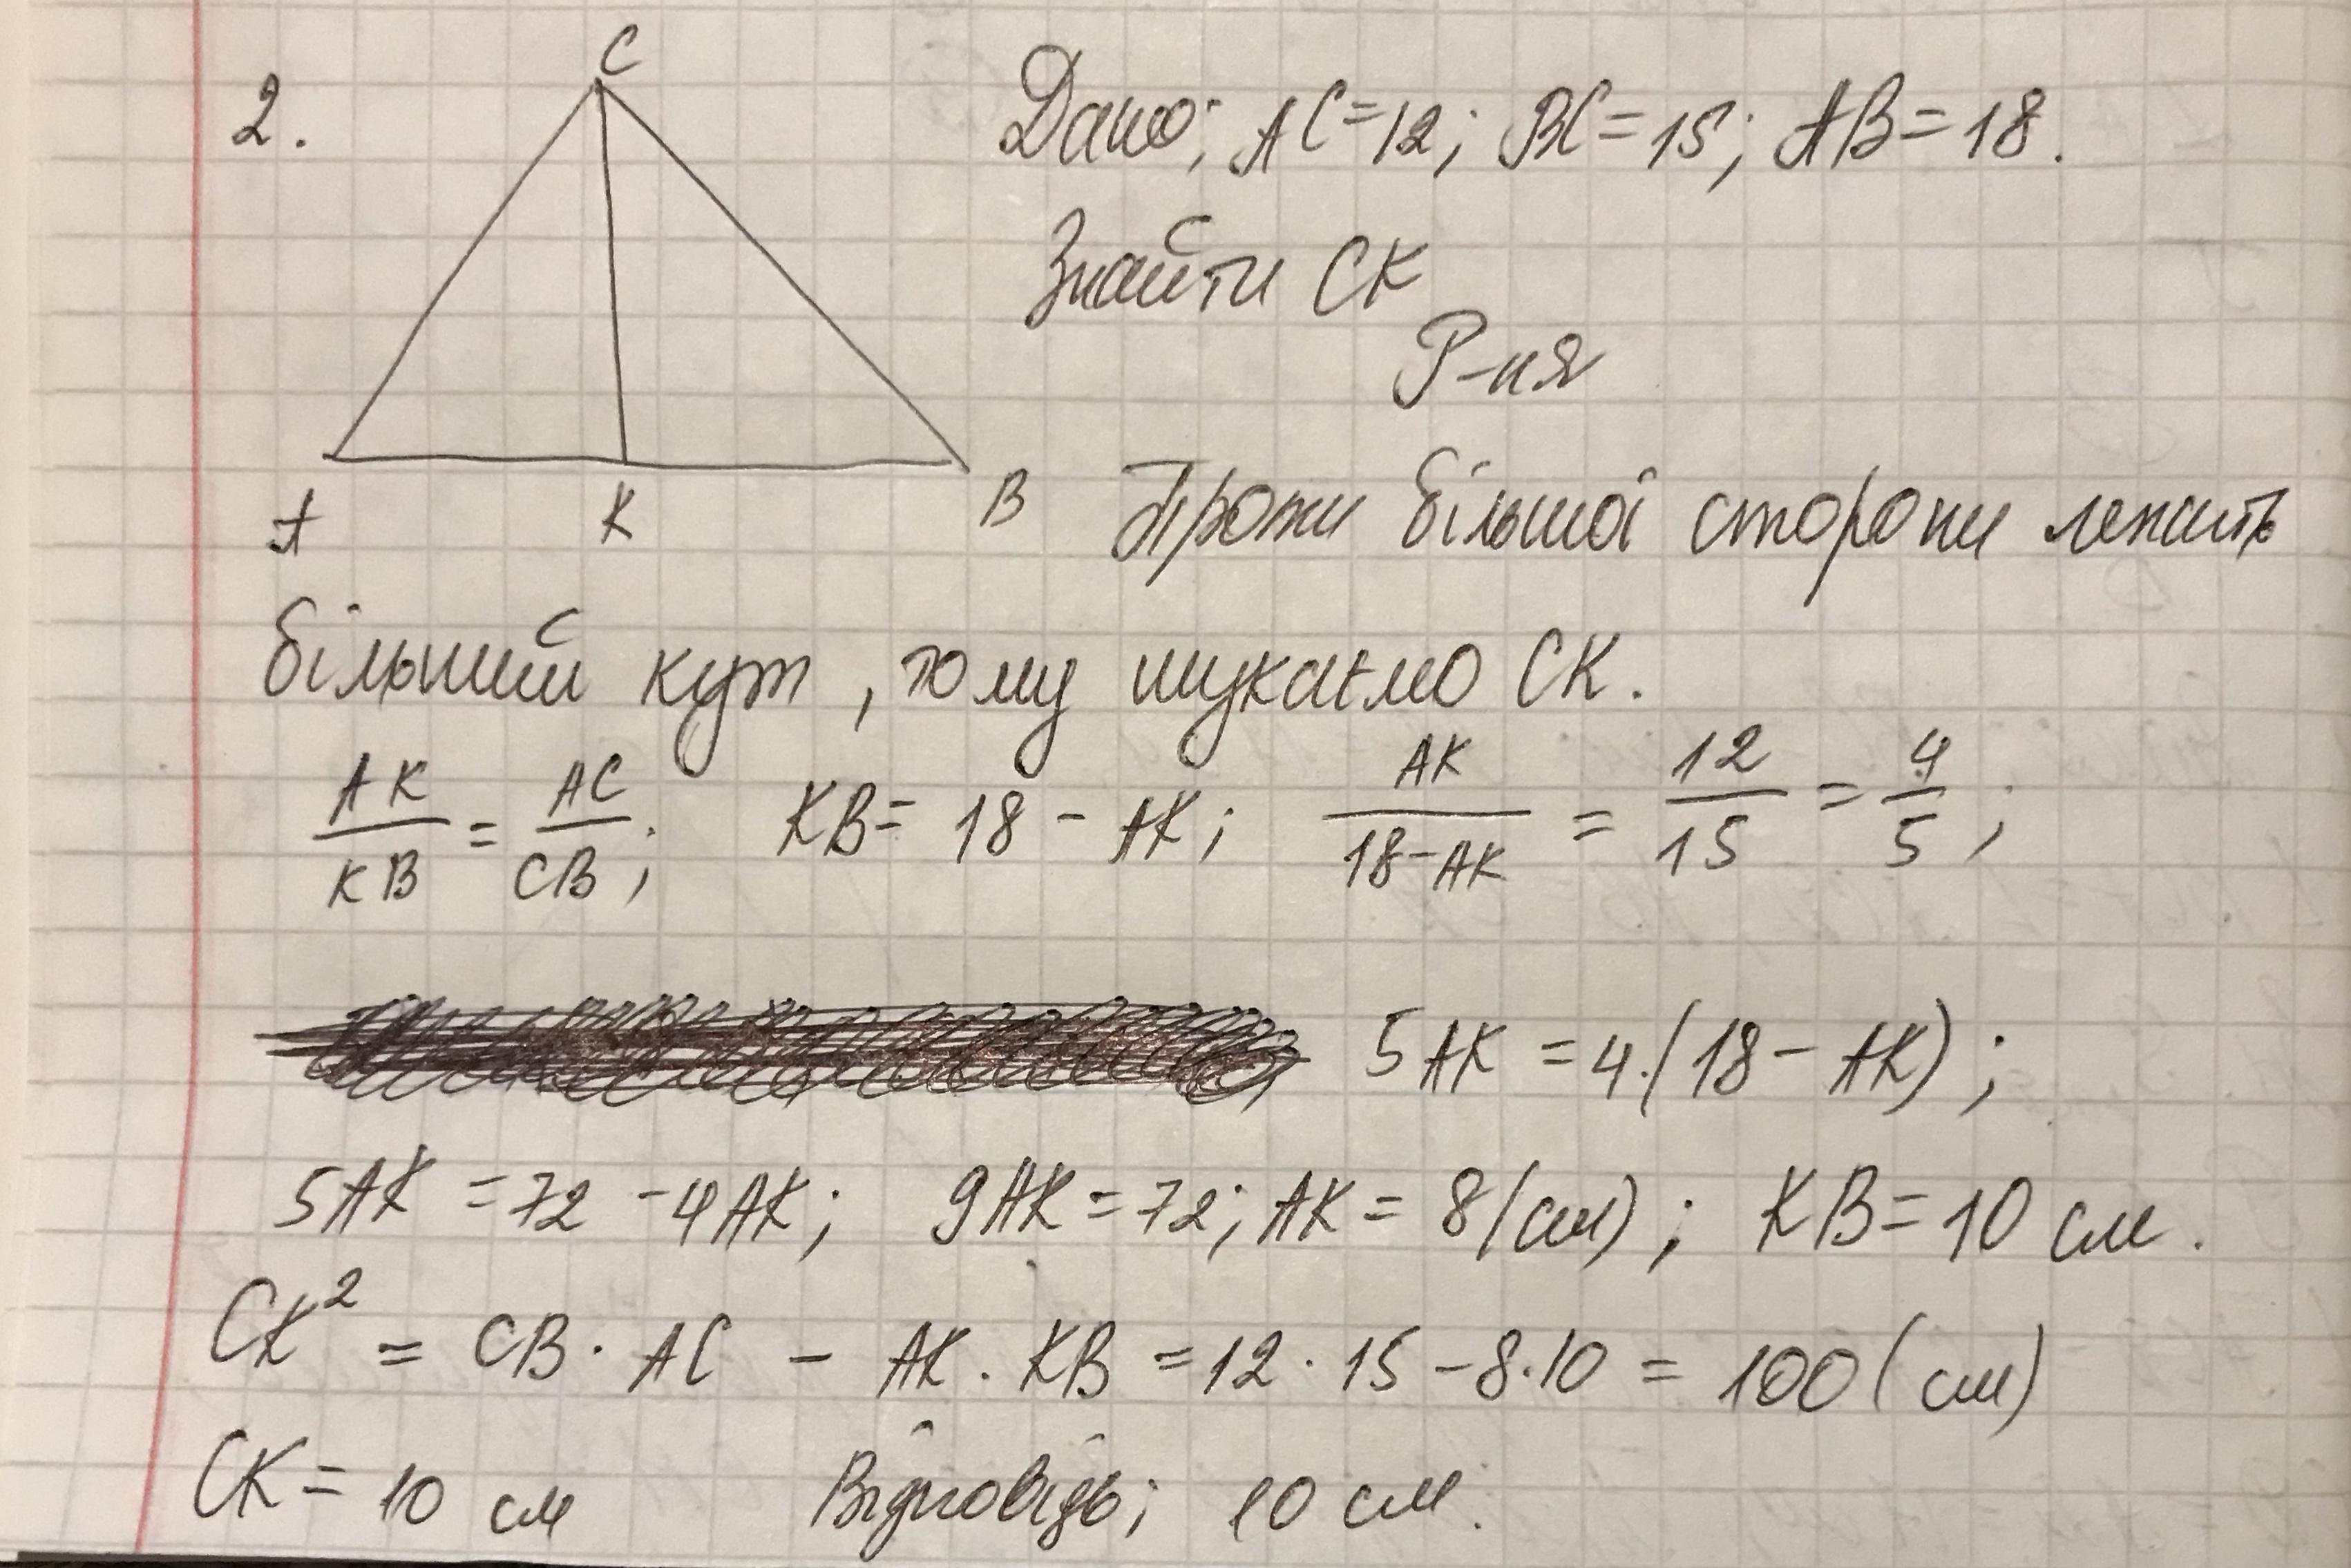 2.
C
Дано; AC=12; BC=15; AB=18.
Знайти CK
Р-ня
A K B
Проти більшої сторони лежить
більший кут, тому шукаємо CK.
AK/KB = AC/CB; KB = 18 - AK; AK/18-AK = 12/15 = 4/5;
5AK = 4·(18 - AK);
5AK = 72 - 4AK; 9AK = 72; AK = 8(см); KB = 10 см.
CK² = CB · AC - AK · KB = 12 · 15 - 8·10 = 100(см)
CK = 10 см Відповідь; 10 см.